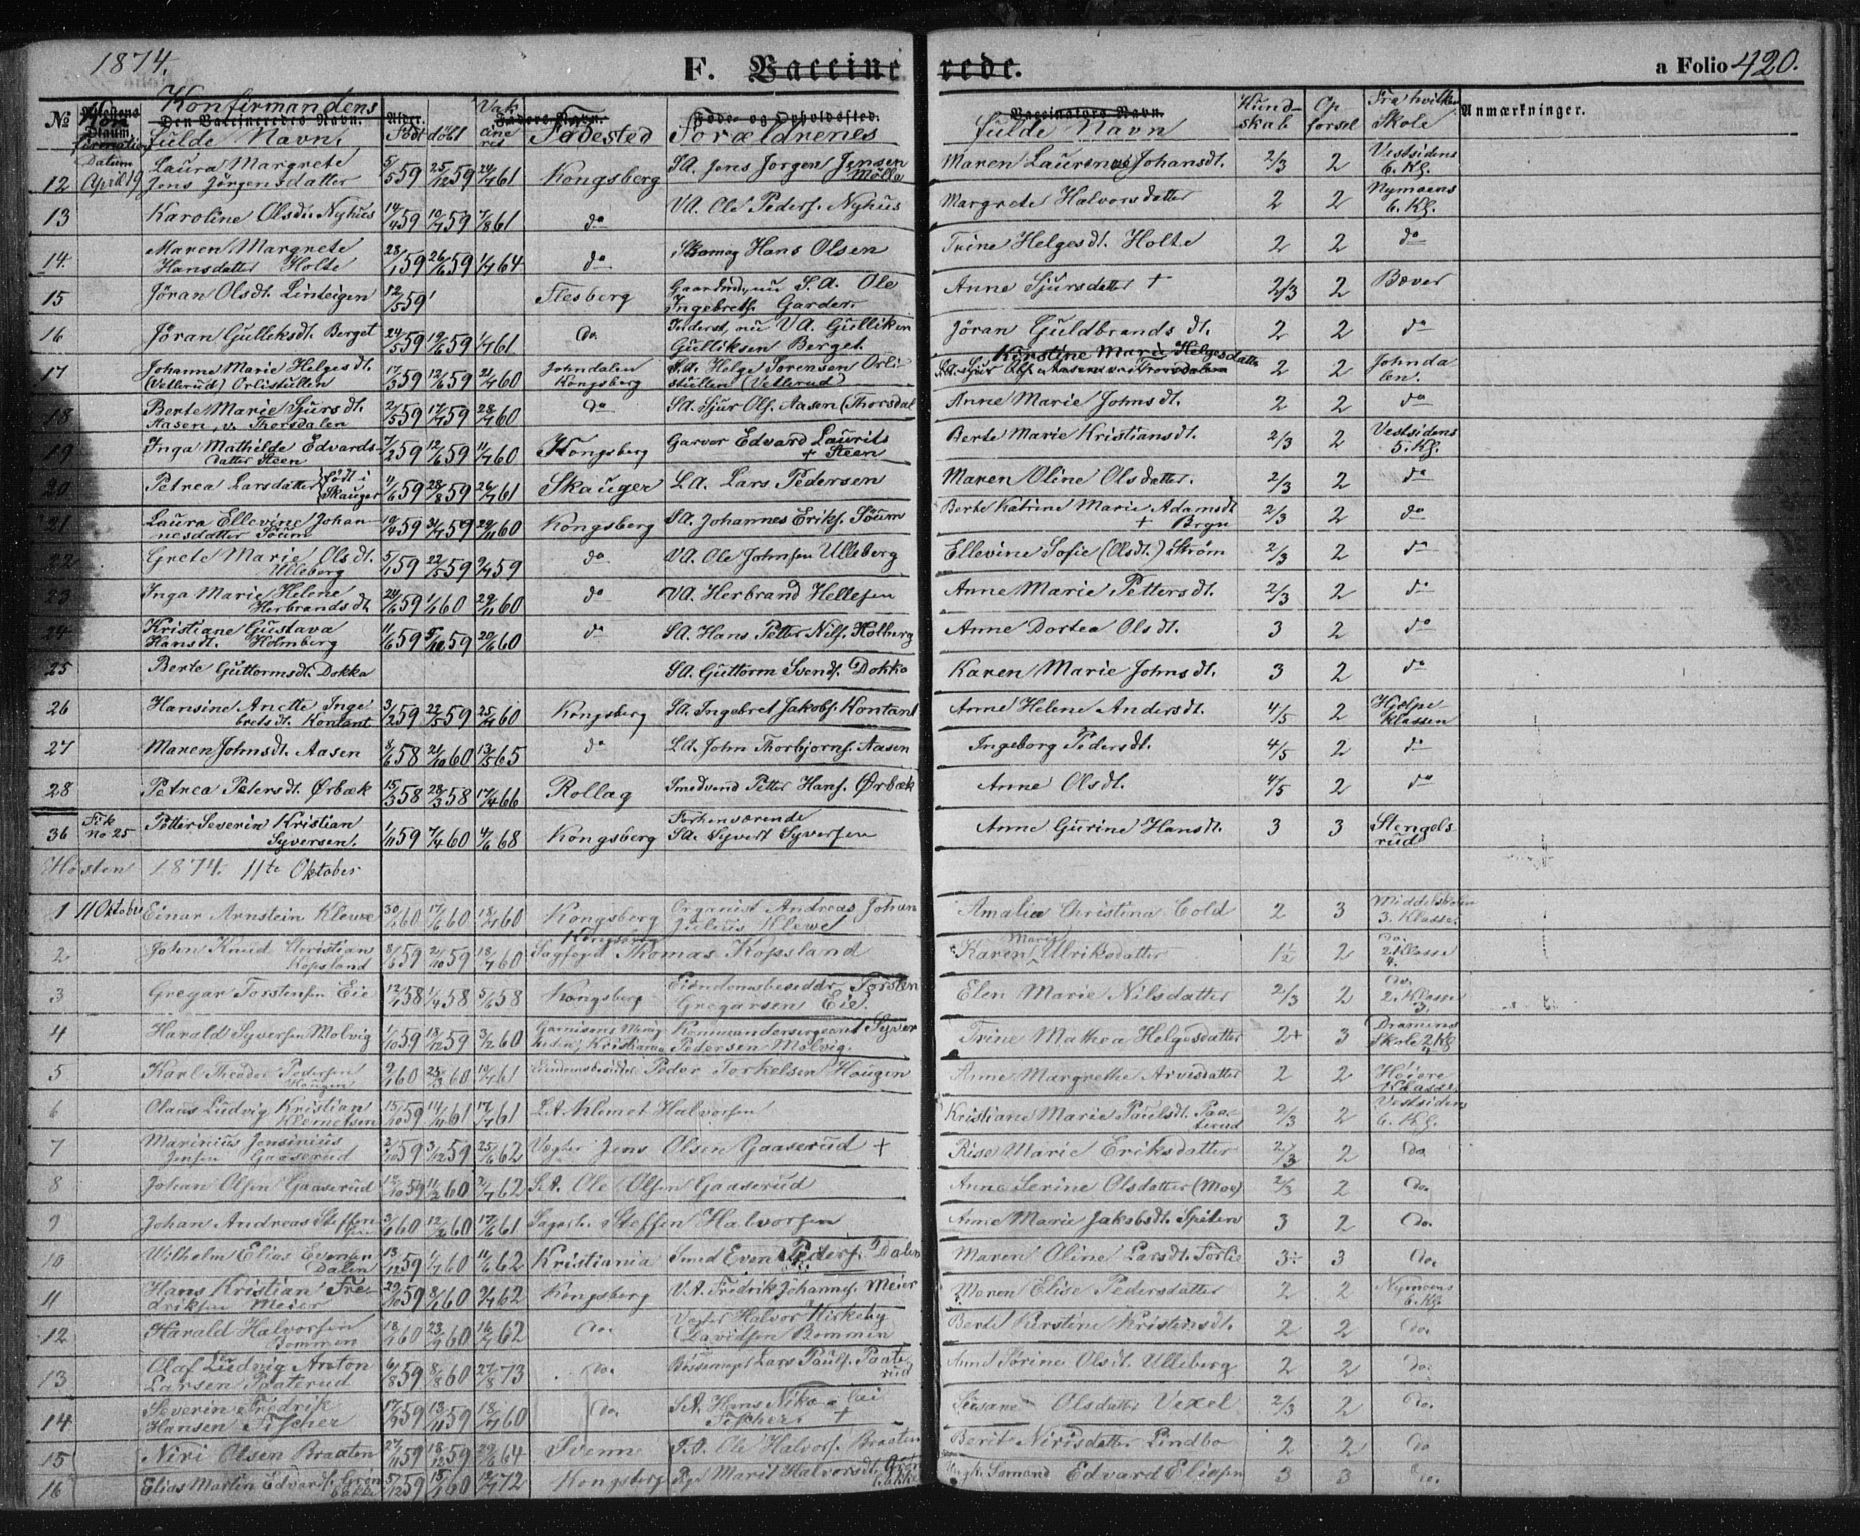 1874.
F. Vaccinerede.
a Folio 420.
No
Konfirmandens
Den Vaccineredes Navn.
fulde Navn.
Alder.
Födt
döbt
Vakcineret
Faders Navn.
Fødested
Føde- og Opholdssted.
Forældrenes
Vaccinators Navn.
fulde Navn
Kundskab
Opforsel
Fra hvilken Skole
Anmærkninger.
Datum
12 April 19 Laura Margrete Jens Jörgensdatter 5/5 59 25/12 59 24/7 61 Kongsberg SA. Jens Jorgen Jensen Mölla Maren Laurense Johansdt. 2/3 2 Vestsidens 6. Kl.
13 Karoline Olsdt. Nyhus 14/4 59 10/7 59 7/8 61 do VA. Ole Peders. Nyhus Margrete Halvorsdatter 2 2 Nymoens 6. Kl.
14. Maren Margrete Hansdatter Holte 28/1 59 26/6 59 1/7 64 do Skomag Hans Olsen Trine Helgesdt. Holte 2 2 do
15 Jöran Olsdt. Linteigen 12/5 59 Flesberg Gaardmd., nu S.A. Ole Ingebreths. Garder Anne Sjursdatter + 2/3 2 Bæver
16 Jöran Gulliksdt. Berget 24/5 59 19/6 59 1/7 61 do Inderst, nu VA. Gulliken Gulliksen Berget Jöran Guldbrandsdt. 2 2 do
17 Johanne Marie Helgesdt. (Vetterud) Orlistullen 17/3 59 12/6 59 21/7 60 Johndalen Kongsberg SA. Helge Sorensen Orlistullen (Vetterud) Kirstine Marie Helgesdatter 2 2 Johndalen.
18 Berte Marie Sjursdt. Aasen, v. Thorsdalen 2/5 59 17/7 59 28/7 60 do SA. Sjur Ols. Aasen (Thorsdal Anne Marie Johnsdt. 2 2 do
19 Inga Mathilde Edvardsdatter Steen 7/2 59 12/6 59 11/7 60 Kongsberg Garver Edvard Laurits + Steen Berte Marie Kristiansdt. 2/3 2 Vestsidens 5. Kl.
20 Petrea Larsdatter (födt i Skauger 11/6 59 28/8 59 26/7 61 Skauger LA. Lars Pedersen Maren Oline Olsdatter. 2/3 2 do
21 Laura Ellevine Johannesdatter Soum 19/4 59 31/7 59 29/11 60 Kongsberg SA. Johannes Eriks. Soum Berte Katrine Marie Adamsdt + Bryn 2/3 2 do
22 Grete Marie Olsdt. Ulleberg 5/1 59 22/5 59 2/7 59 do VA. Ole Johnsen Ulleberg Ellevine Sofie (Olsdt.) Strøm 2/3 2 do
23 Inga Marie Helene Herbrandsdt 24/6 59 1/1 60 29/11 60 do VA. Herbrand Hellesen Anne Marie Pettersdt. 2/3 2 do
24 Kristiane Gustava Hansdt. Holmberg 11/6 59 5/10 59 20/6 60 do SA. Hans Petter Nils. Holberg Anne Dortea Olsdt. 3 2 do
25 Berte Guttormsdt. Dokka SA. Guttorm Svends. Dokka Karen Marie Johnsdt. 3 2 do
26 Hansine Anette Ingebretsdt. Kontant 3/2 59 22/5 59 25/4 60 Kongsberg SA. Ingebret Jakobs. Kontant Anne Helene Andersdt. 4/5 2 Hjelpe klassen
27 Maren Johnsdt. Aasen 8/6 58 21/10 60 13/5 65 do LA. John Thorbjorns. Aasen Ingeborg Pedersdt. 4/5 2 do
28 Petrea Petersdt. Ørbæk 15/3 58 28/3 58 17/4 66 Rollag Smedsvend Petter Hans. Ørbæk Anne Olsdt. 4/5 2 do
36 No 25 Petter Severin Kristian Syversen. 1/11 59 7/4 60 4/6 68 Kongsberg Forhenværende SA. Syvert Syversen Anne Gurine Hansdt. 3 3 Stengelsrud
Høsten 1874. 11te Oktober
1 11 Oktober Einar Arnstein Klewe 30/3 60 17/6 60 18/7 60 Kongsberg Organist Andreas Johan Julius Klewe Amalia Christina Cold 2 3 Middelskolen 3. Klasse.
2 John Knud Christian Kopsland 8/6 59 2/10 59 18/7 60 Kongsberg Sagfoged Thomas Kopsland Karen Marie Ulriksdatter 1½ 2 do. 2 Klasse 4.
3 Gregar Torstensen Eie 12/1 58 1/4 58 5/6 58 Kongsberg Eiendomsbesidder Torsten Gregarsen Eie. Elen Marie Nilsdatter 2/3 2 do. 2. Klasse 3.
4 Harald Syversen Molvig 1/10 59 18/12 59 3/2 60 Garnisons Menigheden, Kristiania Kommandersergeant Syver Pedersen Molvig. Trine Mathea Helgesdatter 2+ 3 Dramens Skole 2 Kl
5 Karl Theodor Pedersen Haugen 9/1 60 25/3 60 19/7 61 Eiendomsbesidder Peder Torkelsen Haugen Anne Margrethe Arvesdatter 2 2 Høiere Klasse
6 Olaus Ludvig Kristian Klemetsen 15/10 59 14/4 61 17/7 61 L.A. Klemet Halvorsen Kristiane Marie Paulsdt. Paaterud 2/3 2 Vestsiden 6. Kl.
7 Marinius Jensinius Jensen Gaaserud 2/10 59 3/12 59 25/6 62 Vægter Jens Olsen Gaaserud + Rise Marie Eriksdatter 2/3 2 do
8 Johan Olsen Gaaserud 12/10 59 11/2 60 2/7 62 S.A. Ole Olsen Gaaserud Anne Serine Olsdatter (Moe) 2/3 2 do.
9 Johan Andreas Steffensen 3/1 60 12/2 60 17/6 61 Sagarb. Steffen Halvorsen Anne Marie Jakobsdt. Spiten 3 2 do.
10 Wilhelm Elias Evensen Dalen 13/12 59 1/7 60 11/6 62 Kristiania Smed Even Peders. Dalen Maren Oline Larsdt. Forlie 3÷ 3 do.
11 Hans Kristian Fredriksen Meier 29/10 59 8/1 60 2/7 62 Kongsberg V.A. Fredrik Johannes. Meier Maren Elise Pedersdatter 2 2 Nymoens 6. Kl.
12 Harald Halvorsen Bommen 18/7 60 23/9 60 16/7 62 do. Vegter Halvor Kirkeby Davidsen Bommen Berte Kirstine Kristensdt. 2 2 do.
13 Olaf Ludvig Anton Larsen Paaterud 6/8 59 8/8 60 27/8 73 do. Bøssemager Lars Pauls. Paaterud Anne Sørine Olsdt. Ulleberg 2 2 do.
14 Severin Fredrik Hansen Fischer 17/9 59 13/11 59 18/7 60 do. S.A. Hans Nikolai Fischer + Susane Olsdatter Vexel 2/3 2 do.
15 Niri Olsen Braaten 27/11 59 18/12 59 29/6 64 Svenne F.A. Ole Halvors. Braaten Berit Nirisdatter Lindbo 2 2 do
16 Elias Martin Edvards. Grønbakke 5/12 59 15/1 60 12/7 72 Kongsberg Pige Marit Halvorsdt. Grønbakke Ungk. Sømand Edvard Eliesen 3 3 do.